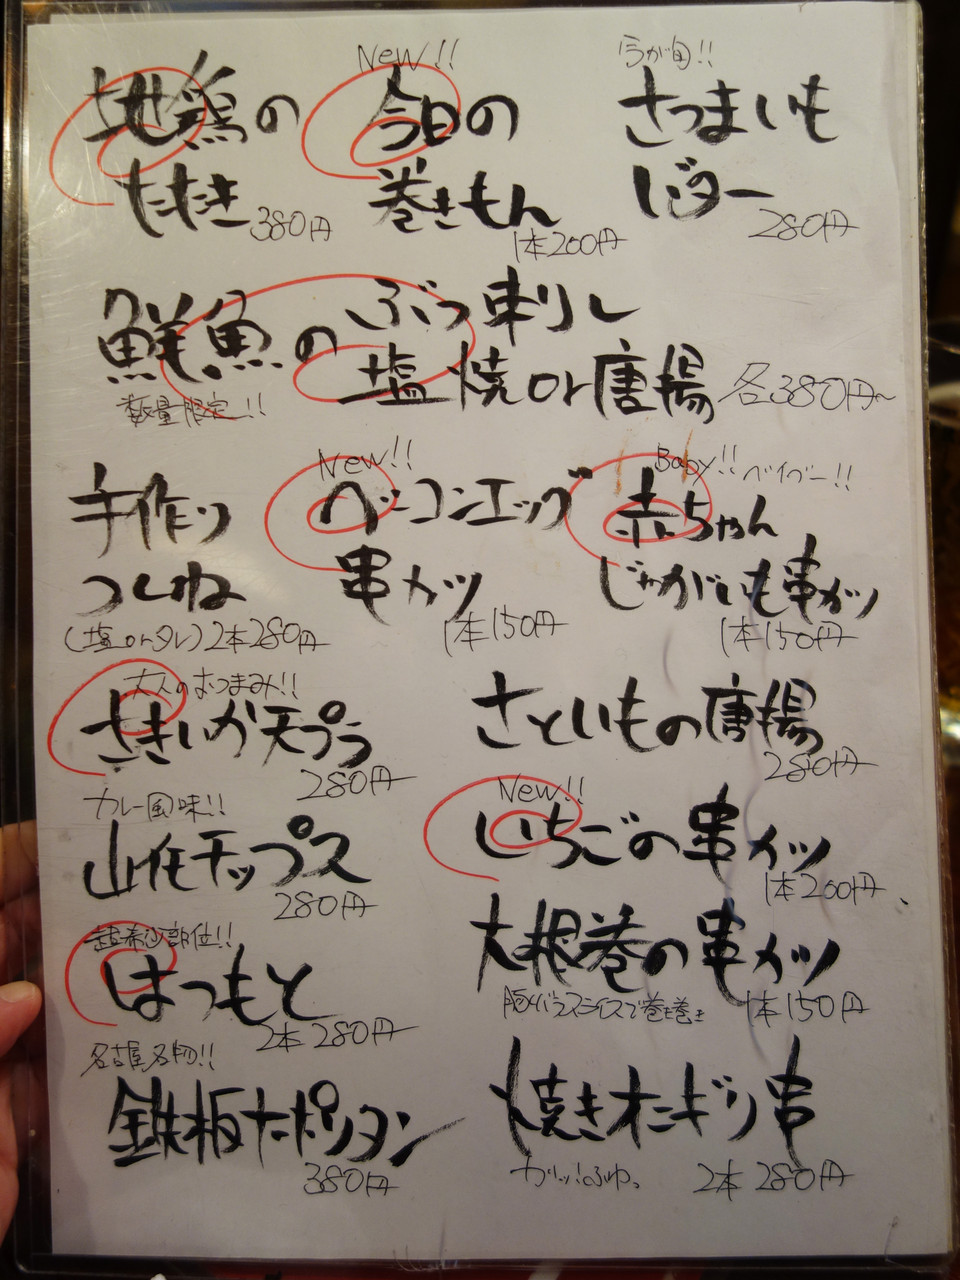 地鶏の
たたき 380円
New!!
今日の
巻きもん
1本200円
今が旬!!
さつまいも
バター
280円
鮮魚の ぶつ刺し
塩焼or唐揚 各380円~
数量限定!!
手作り
つくね
(塩orタレ)2本280円
New!!
ベーコンエッグ
串カツ
1本150円
Baby!! ベイブー!!
赤ちゃん
じゃがいも串カツ
1本150円
大人のおつまみ!!
さきいか天プラ
280円
さといもの唐揚
280円
カレー風味!!
山芋チップス
280円
New!!
いちごの串カツ
1本200円
超希少部位!!
はつもと
2本280円
大根巻の串カツ
豚バラスライスで巻き巻き 1本150円
名古屋名物!!
鉄板ナポリタン
380円
焼きオニギリ串
カリッ!ふわっ 2本280円